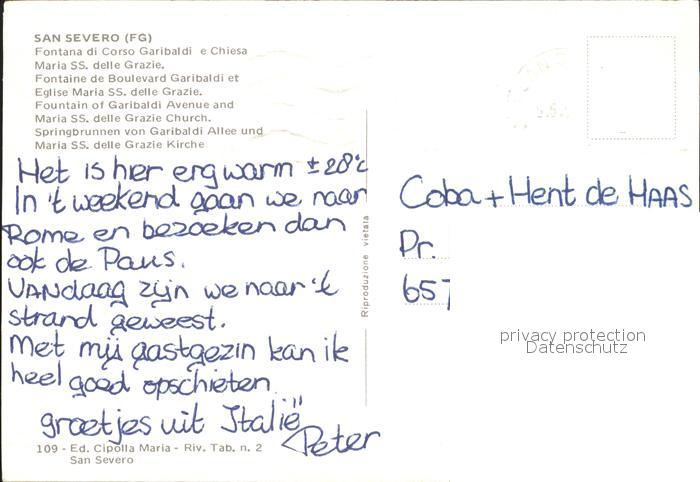 SAN SEVERO (FG)
Fontana di Corso Garibaldi e Chiesa
Maria SS. delle Grazie.
Fontaine de Boulevard Garibaldi et
Eglise Maria SS. delle Grazie.
Fountain of Garibaldi Avenue and
Maria SS. delle Grazie Church.
Springbrunnen von Garibaldi Allee und
Maria SS. delle Grazie Kirche
Het is hier erg warm ± 28°c
In 't weekend gaan we naar
Rome en bezoeken dan
ook de Paus.
VANdaag zijn we naar 't
strand geweest.
Met mij gastgezin kan ik
heel goed opschieten.
groetjes uit Italië
Peter
109 - Ed. Cipolla Maria - Riv. Tab. n. 2
San Severo
Riproduzione vietata
Coba + Hent de HAAS
Pr.
657
privacy protection
Datenschutz